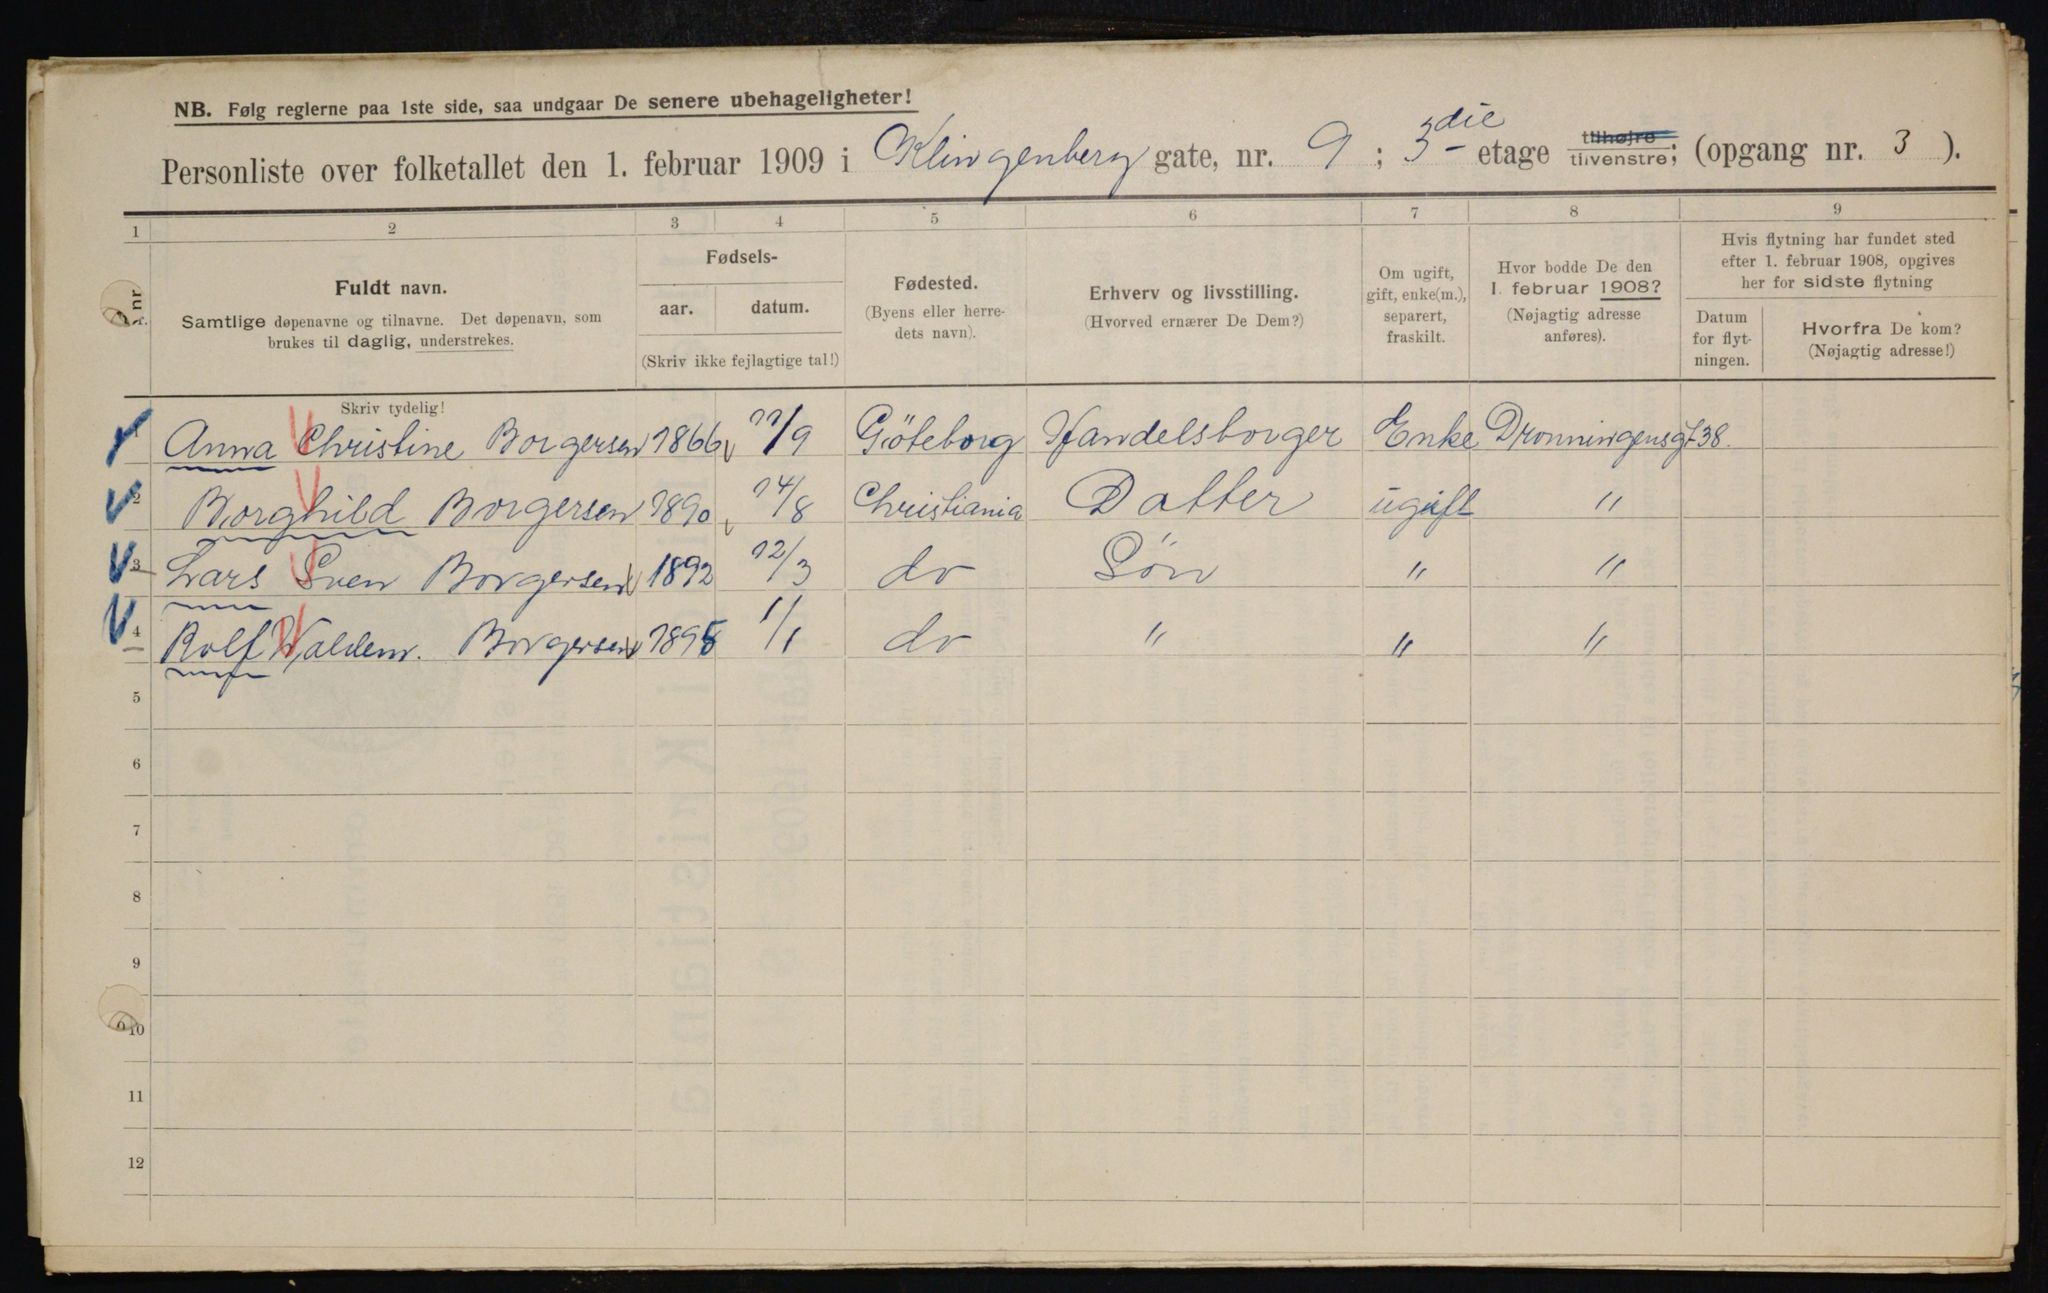 NB. Følg reglerne paa 1ste side, saa undgaar De senere ubehageligheter!
Personliste over folketallet den 1. februar 1909 i Klingenberg gate, nr. 9; 3die etage tilhøjre tilvenstre; (opgang nr. 3).
1 2 3 4 5 6 7 8 9
nr.
Fuldt navn.
Samtlige døpenavne og tilnavne. Det døpenavn, som
brukes til daglig, understrekes.
Fødsels-
aar. datum.
(Skriv ikke fejlagtige tal!)
Fødested.
(Byens eller herre-
dets navn).
Erhverv og livsstilling.
(Hvorved ernærer De Dem?)
Om ugift,
gift, enke(m.),
separert,
fraskilt.
Hvor bodde De den
1. februar 1908?
(Nøjagtig adresse
anføres).
Hvis flytning har fundet sted
efter 1. februar 1908, opgives
her for sidste flytning
Datum
for flyt-
ningen.
Hvorfra De kom?
(Nøjagtig adresse!)
Skriv tydelig!
Anna Christine Borgersen 1866 /9 Göteborg Handelsborger Enke Dronningensgt 38.
2 Borghild Borgersen 1890 14/8 Christiania Datter ugift "
3 Lars Sven Borgersen 1892 12/3 do Sön " "
4 Rolf Waldem. Borgersen 1/1 do " " "
5
6
7
8
9
10
11
12